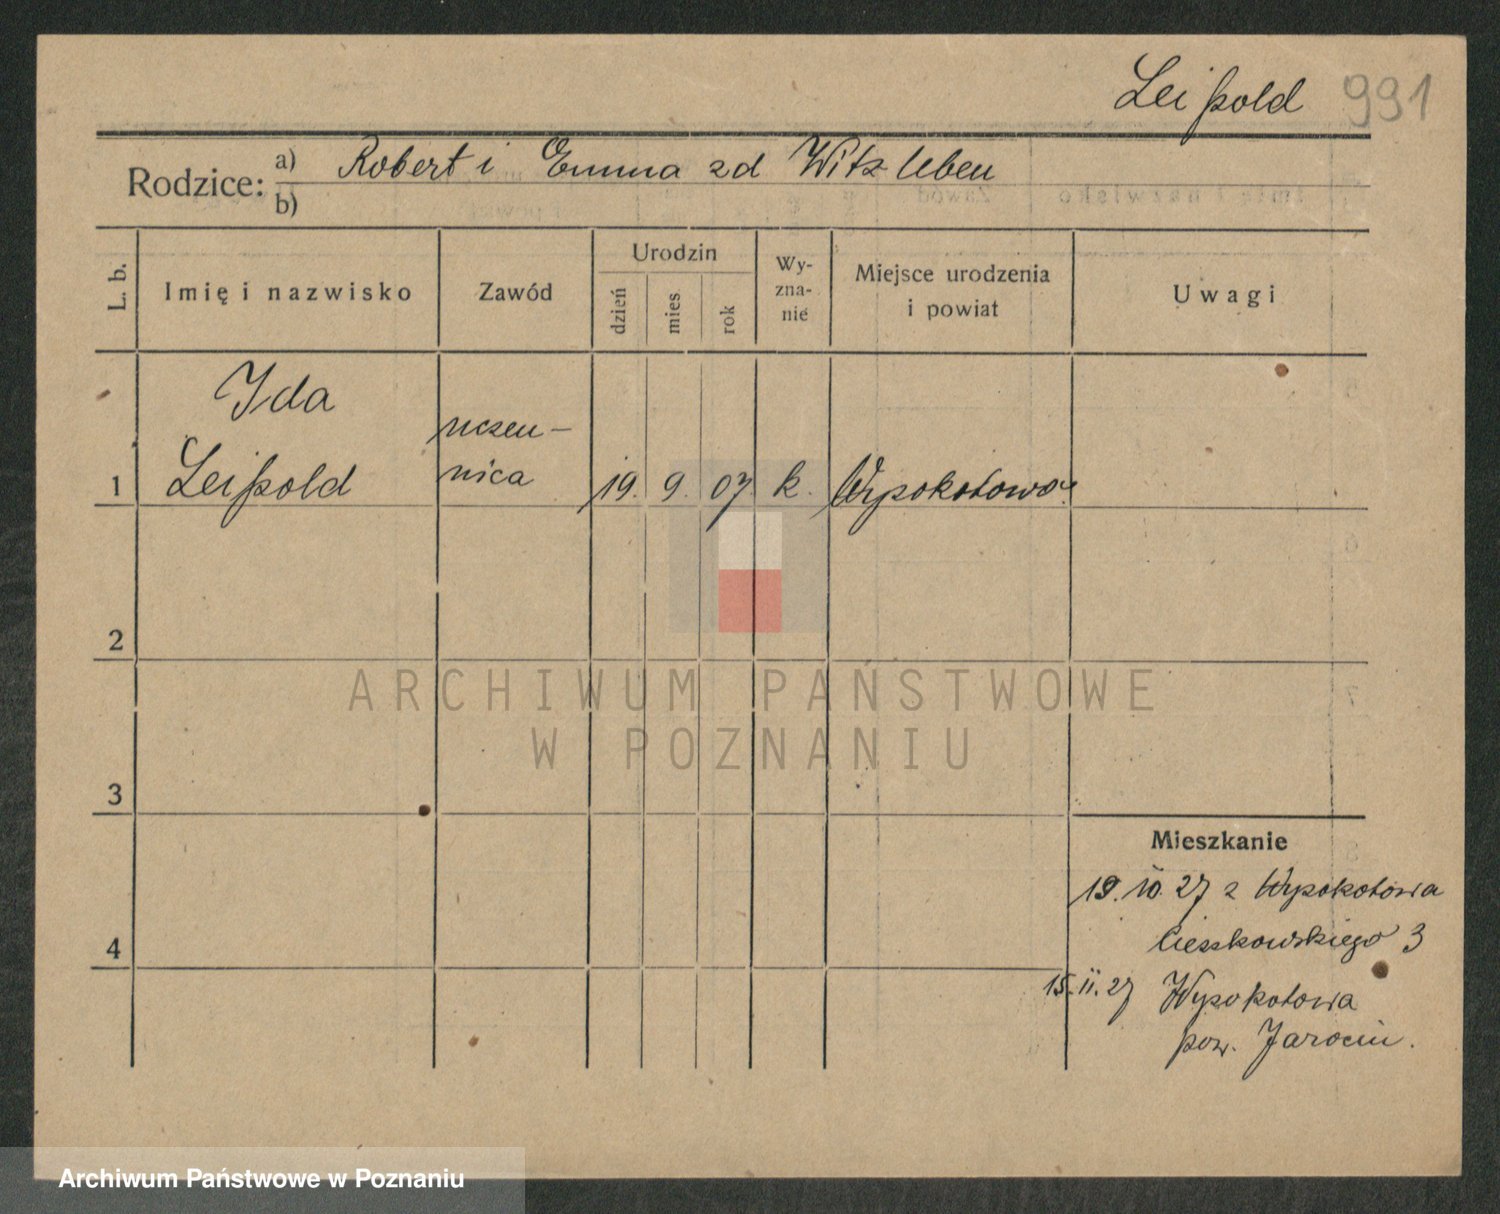 Leipold 991
Rodzice: a) Robert i Emma zd Witzleben
b)
L. b.
Imię i nazwisko
Zawód
Urodzin
dzień
mies
rok
Wy-
zna-
nie
Miejsce urodzenia
i powiat
Uwagi
Ida
uczen-
1 Leipold nica 19. 9. 07 k. Wysokotowo
2
3
4
Mieszkanie
19. 10. 27 z Wysokotowa
Cieszkowskiego 3
15. 11. 27 Wysokotowa
pow. Jarocin.
ARCHIWUM PAŃSTWOWE
W POZNANIU
Archiwum Państwowe w Poznaniu